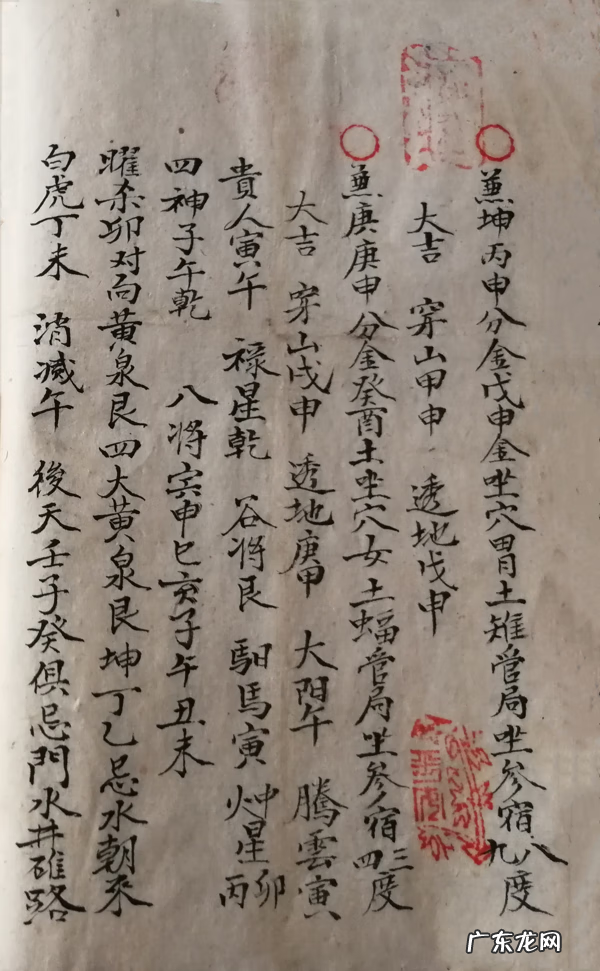 ○兼坤丙申分金戊申金坐穴胃土雉管局坐参宿八九度
大吉 穿山甲申 透地戊申
○兼庚庚申分金癸酉土坐穴女土蝠管局坐参宿三四度
大吉 穿山戊申 透地庚申 大阳午 騰雲寅
貴人寅午 禄星乾 谷将艮 馹馬寅 炐星卯丙
四神子午乾 八将寅申巳亥子午丑未
曜杀卯对向黄泉艮四大黄泉艮坤丁乙忌水朝来
白虎丁未 消滅午 後天壬子癸俱忌門水井碓路
广东龙网